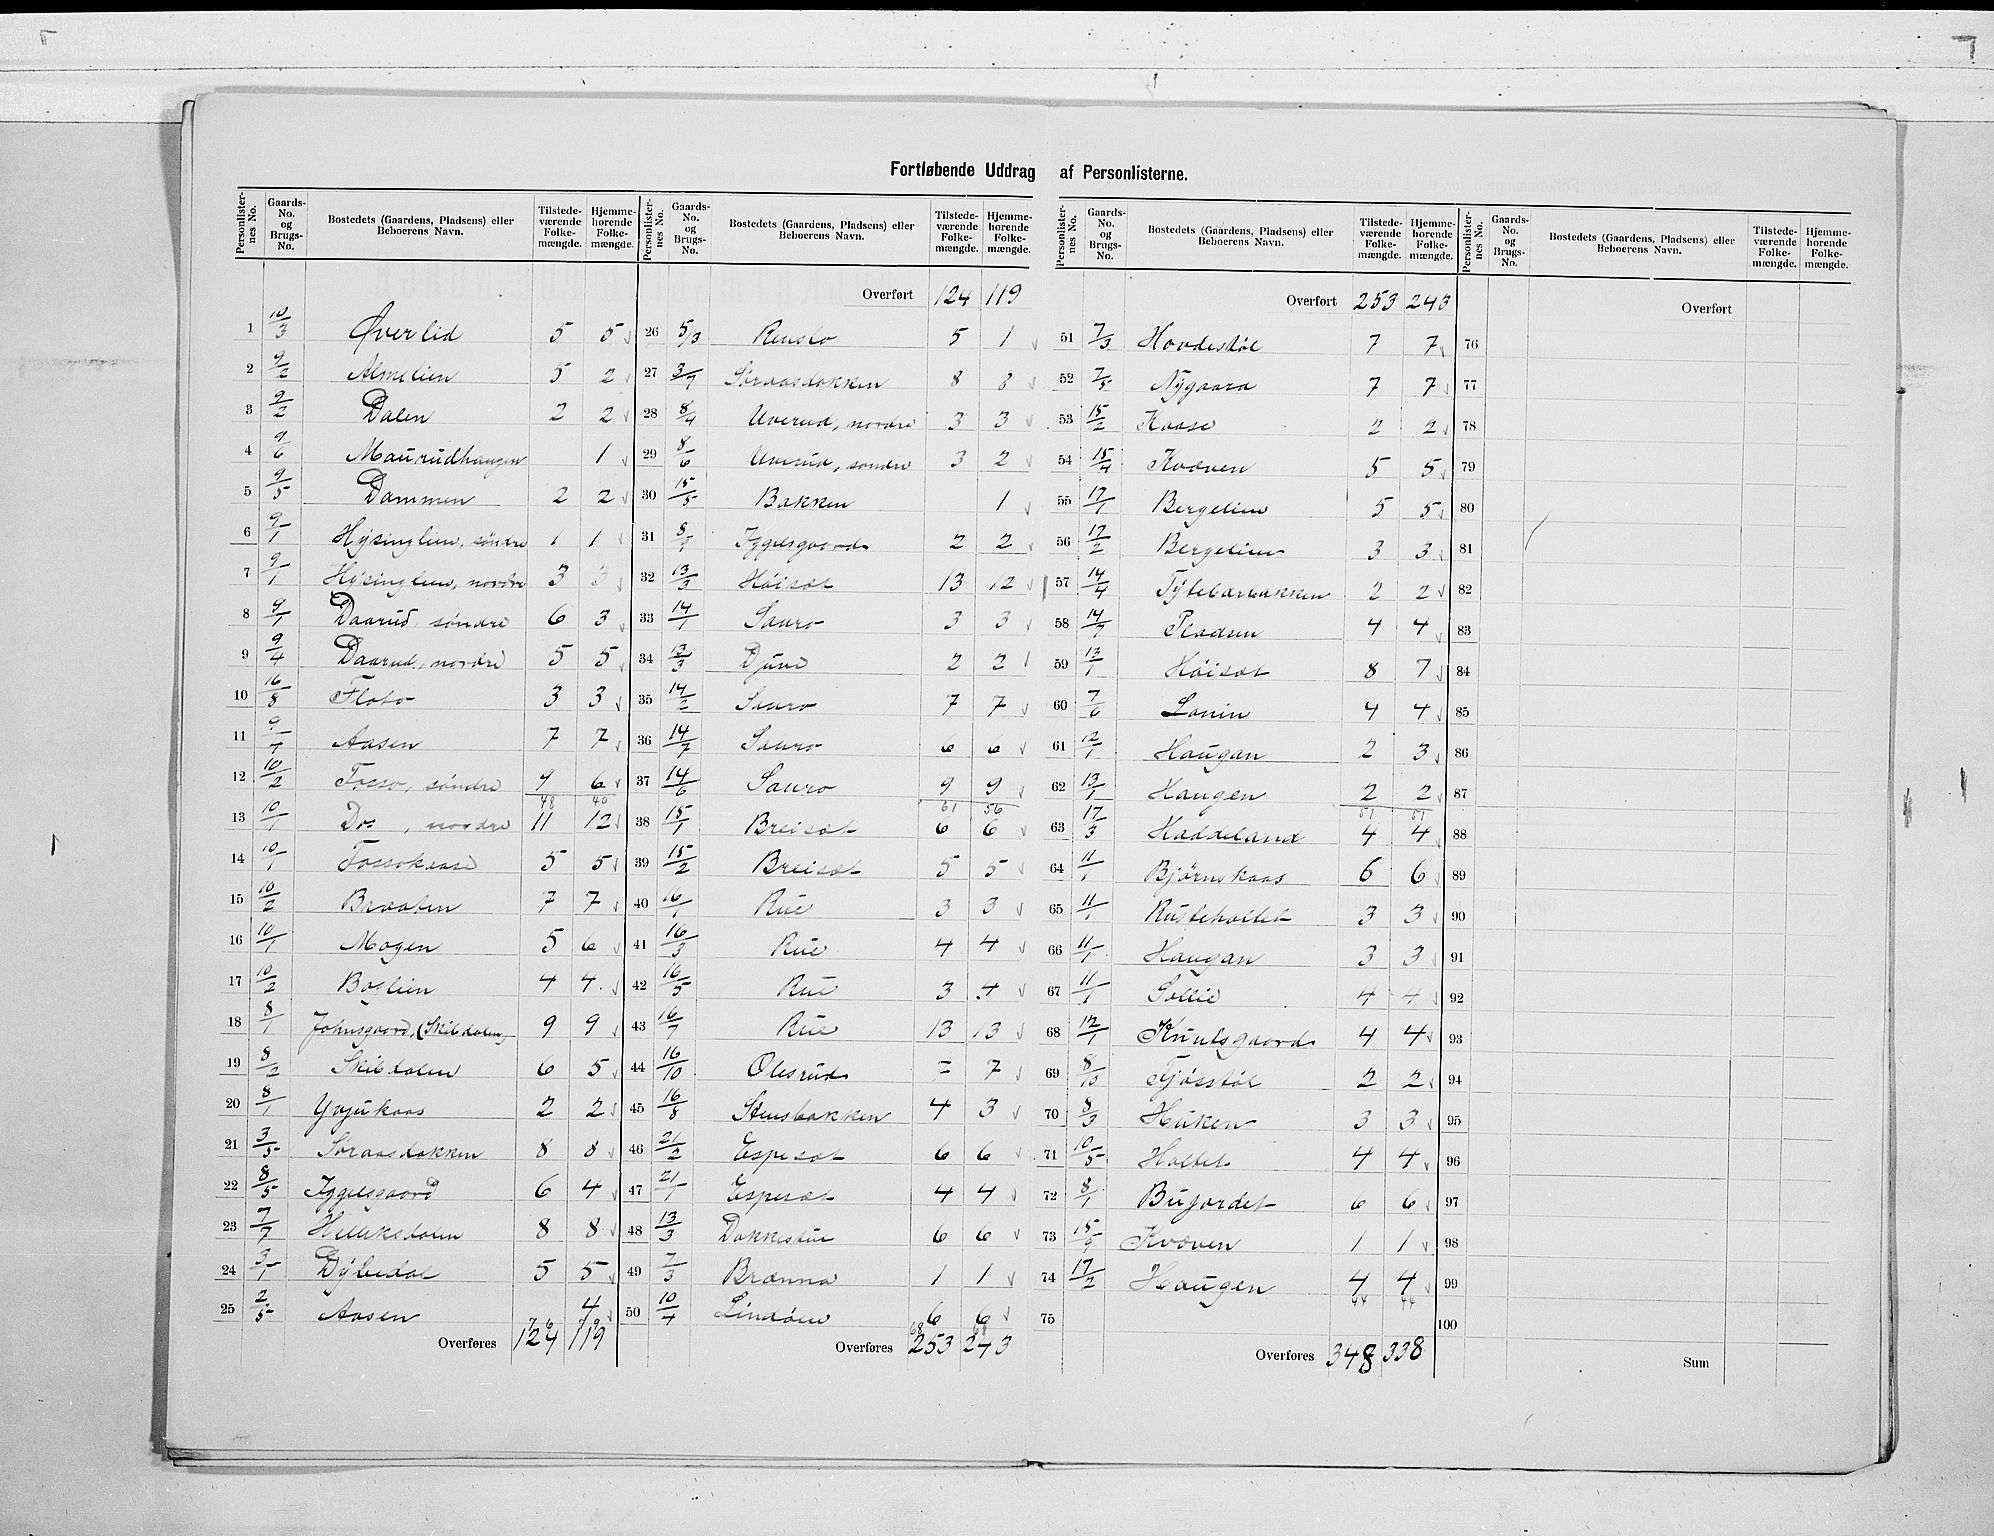 Fortløbende Uddrag af Personlisterne.
Personlisternes No. Gaards-No. og Brugs-No. Bostedets (Gaardens, Pladsens) eller Beboerens Navn. Tilstedeværende Folkemængde. Hjemmehørende Folkemængde.
1 10/3 Øverlid 5 5
2 9/2 Almelien 5 2
3 9/2 Dalen 2 2
4 9/6 Maurudhaugen 1
5 9/5 Dammen 2 2
6 9/1 Hÿsinglien, søndre 1 1
7 9/1 Hÿsinglien, nordre 3 3
8 9/1 Daarud, søndre 6 3
9 9/4 Daarud, nordre 5 5
10 16/8 Floto 3 3
11 9/7 Aasen 7 7
12 10/2 Fosso, søndre 9 6
48 40
13 10/1 Do , nordre 11 12
14 10/1 Fossokaase 5 5
15 10/2 Braaten 7 7
16 10/1 Mogen 5 6
17 10/2 Baglien 4 4
18 8/1 Johnsgaard, (Skibdalen) 9 9
19 8/2 Skibdalen 6 5
20 8/1 2 2
21 3/5 Søraasdokken 8 8
22 8/5 Iggelsgaard 6 4
23 7/7 8 8
24 3/1 Dÿbedal 5 5
25 2/5 Aasen 4
76 79
Overføres 124 119
Personlisternes No. Gaards-No. og Brugs-No. Bostedets (Gaardens, Pladsens) eller Beboerens Navn. Tilstedeværende Folkemængde. Hjemmehørende Folkemængde.
Overført 124 119
26 5/3 Renslo 5 1
27 3/7 Søraasdokken 8 8
28 8/4 Uverud, nordre 3 3
29 8/6 Uverud, søndre 3 2
30 15/5 Bakken 1
31 8/9 Iggelsgaard 2 2
32 13/3 Høisæt 13 12
33 14/1 Sauro 3 3
34 13/3 Djuve 2 2
35 14/2 Sauro 7 7
36 14/7 Sauro 6 6
37 14/6 Sauro 9 9
61 56
38 15/1 Breisæt 6 6
39 15/2 Breisæt 5 5
40 16/1 Rue 3 3
41 16/3 Rue 4 4
42 16/5 Rue 3 4
43 16/7 Rue 13 13
44 16/10 Olesrud 7 7
45 16/8 Stensbakken 4 3
46 21/2 Espesæt 6 6
47 21/1 Espesæt 4 4
48 13/3 Dokkestue 6 6
49 7/3 Brænna 1 1
50 10/4 Lindøen 6 6
68 68
Overføres 253 243
Personlisternes No. Gaards-No. og Brugs-No. Bostedets (Gaardens, Pladsens) eller Beboerens Navn. Tilstedeværende Folkemængde. Hjemmehørende Folkemængde.
Overført 253 243
51 7/3 Hovdestøl 7 7
52 7/5 Nÿgaard 7 7
53 15/2 Kaase 2 2
54 15/4 Kvæven 5 5
55 17/1 Bergelien 5 5
56 17/2 Bergelien 3 3
57 14/4 Tÿtebærbakken 2 2
58 14/9 Pladsen 4 4
59 13/1 Høisæt 8 7
60 7/6 Lonin 4 4
61 12/1 Haugan 2 3
62 13/1 Haugen 2 2
51 51
63 17/3 Haddeland 4 4
64 11/1 Bjørnskaas 6 6
65 11/1 Rusteholtet 3 3
66 11/1 Haugan 3 3
67 11/1 Sollie 4 4
68 12/1 Knutsgaard 4 4
69 8/10 Tjösstöl 2 2
70 8/3 Haken 3 3
71 10/5 Holtet 4 4
72 8/1 Bufordet 6 6
73 15/9 Kvæven 1 1
74 17/2 Haugen 4 4
44 44
75
Overføres 348 338
Personlisternes No. Gaards-No. og Brugs-No. Bostedets (Gaardens, Pladsens) eller Beboerens Navn. Tilstedeværende Folkemængde. Hjemmehørende Folkemængde.
Overført
76
77
78
79
80
81
82
83
84
85
86
87
88
89
90
91
92
93
94
95
96
97
98
99
100
Sum